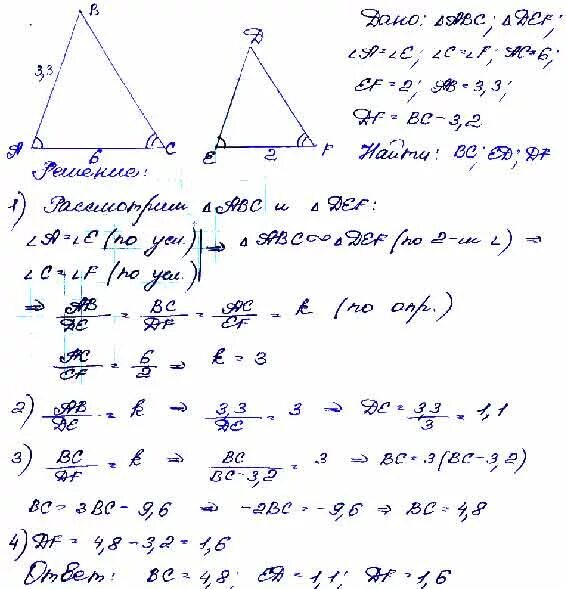 B
3,3
A
6
C
D
E
2
F
Дано: △ABC; △DEF;
∠A=∠E; ∠C=∠F; AC=6;
EF=2; AB=3,3;
DF=BC-3,2
Найти: BC; ED; DF
Решение:
1) Рассмотрим △ABC и △DEF:
∠A=∠E (по усл.) | ⇒ △ABC∞△DEF (по 2-м ∠) ⇒
∠C=∠F (по усл.)
⇒ AB/DE = BC/DF = AC/EF = k (по опр.)
AC/EF = 6/2 ⇒ k = 3
2) AB/DE = k ⇒ 3,3/DE = 3 ⇒ DE = 3,3/3 = 1,1
3) BC/DF = k ⇒ BC/BC-3,2 = 3 ⇒ BC=3(BC-3,2)
BC = 3BC-9,6 ⇒ -2BC=-9,6 ⇒ BC=4,8
4) DF = 4,8-3,2=1,6
Ответ: BC=4,8; ED=1,1; DF=1,6